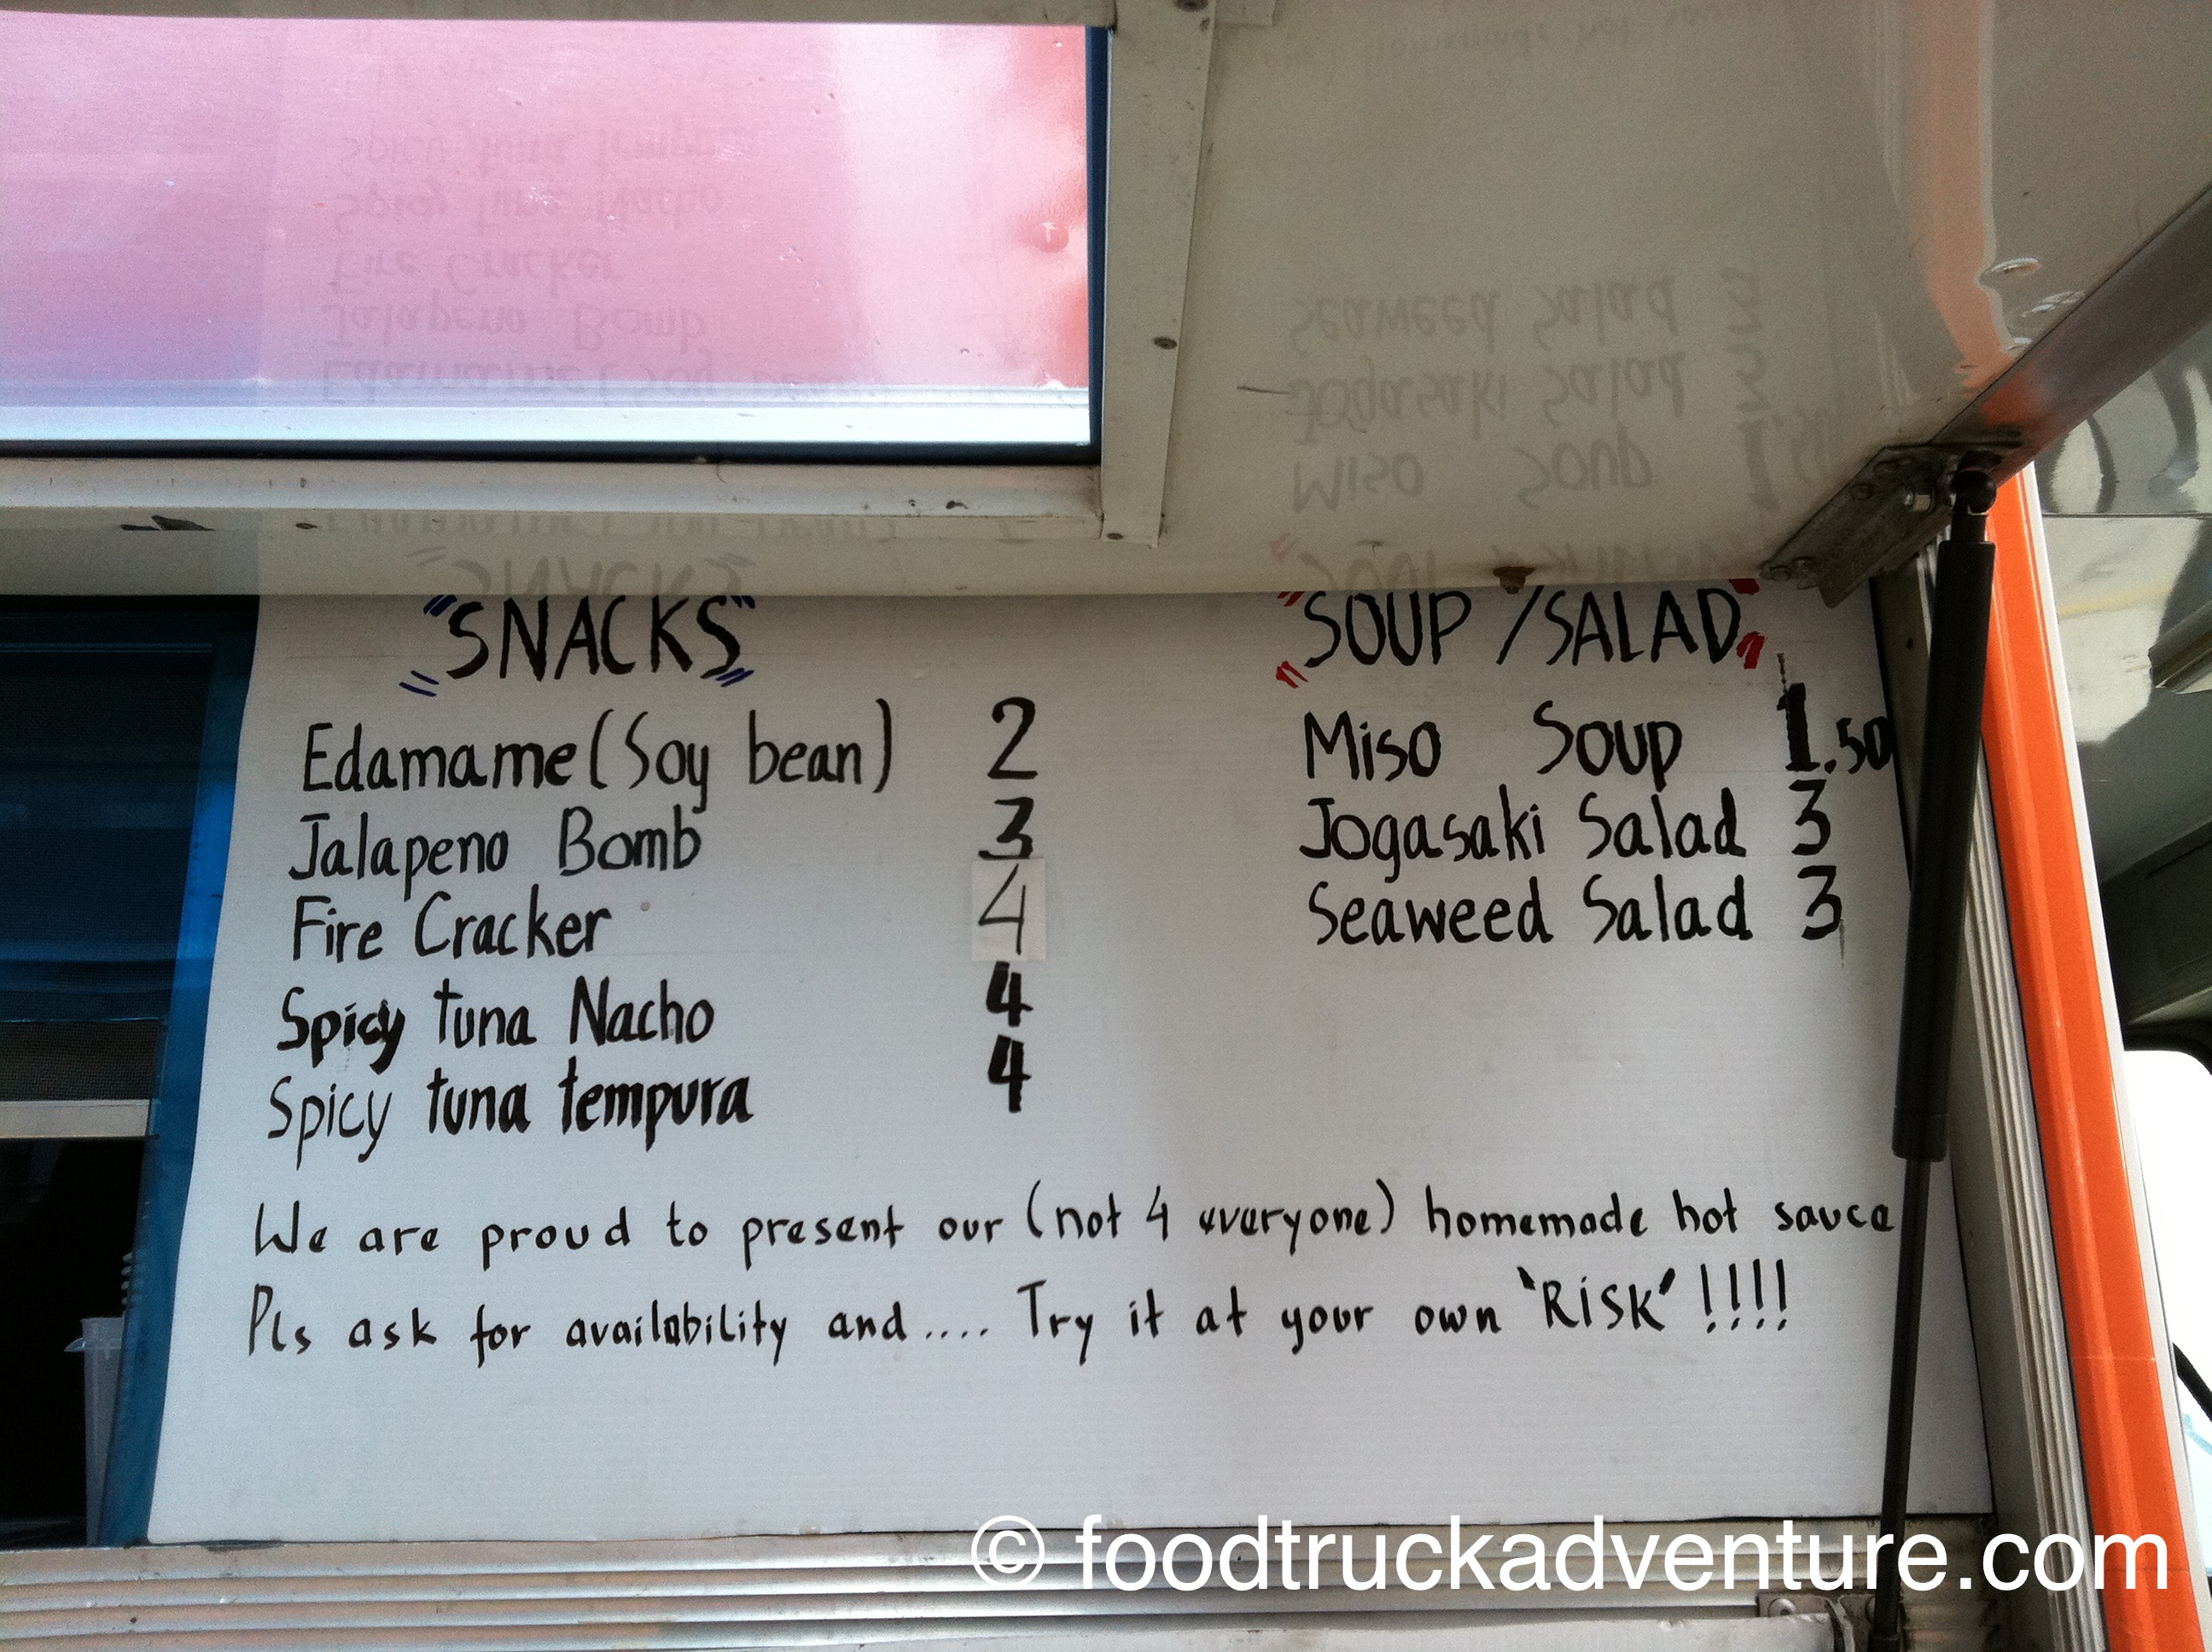 "SNACKS"
Edamame (Soy bean) 2
Jalapeno Bomb 3
Fire Cracker 4
Spicy tuna Nacho 4
Spicy tuna tempura 4
"SOUP / SALAD"
Miso Soup 1.50
Jogasaki Salad 3
Seaweed Salad 3
We are proud to present our (not 4 everyone) homemade hot sauce
Pls ask for availability and .... Try it at your own 'RISK' !!!!
© foodtruckadventure.com